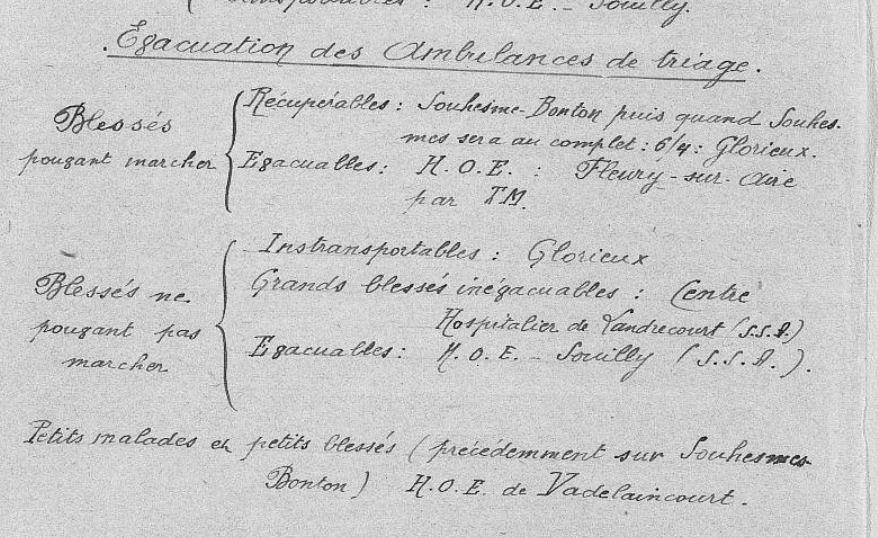 transportables : H.O.E. - Souilly.
Evacuation des Ambulances de triage.
Blessés
pouvant marcher
Récupérables : Souhesme-Bonton puis quand Souhes-
mes sera au complet : 6/4 : Glorieux.
Evacuables : H.O.E. : Fleury-sur-Aire
par TM.
Blessés ne
pouvant pas
marcher
Instransportables : Glorieux
Grands blessés inévacuables : Centre
Hospitalier de Landrecourt (S.S.A.)
Evacuables : H.O.E. - Souilly (S.S.A.).
Petits malades et petits blessés (précédemment sur Souhesmes
Bonton) H.O.E. de Vadelaincourt.